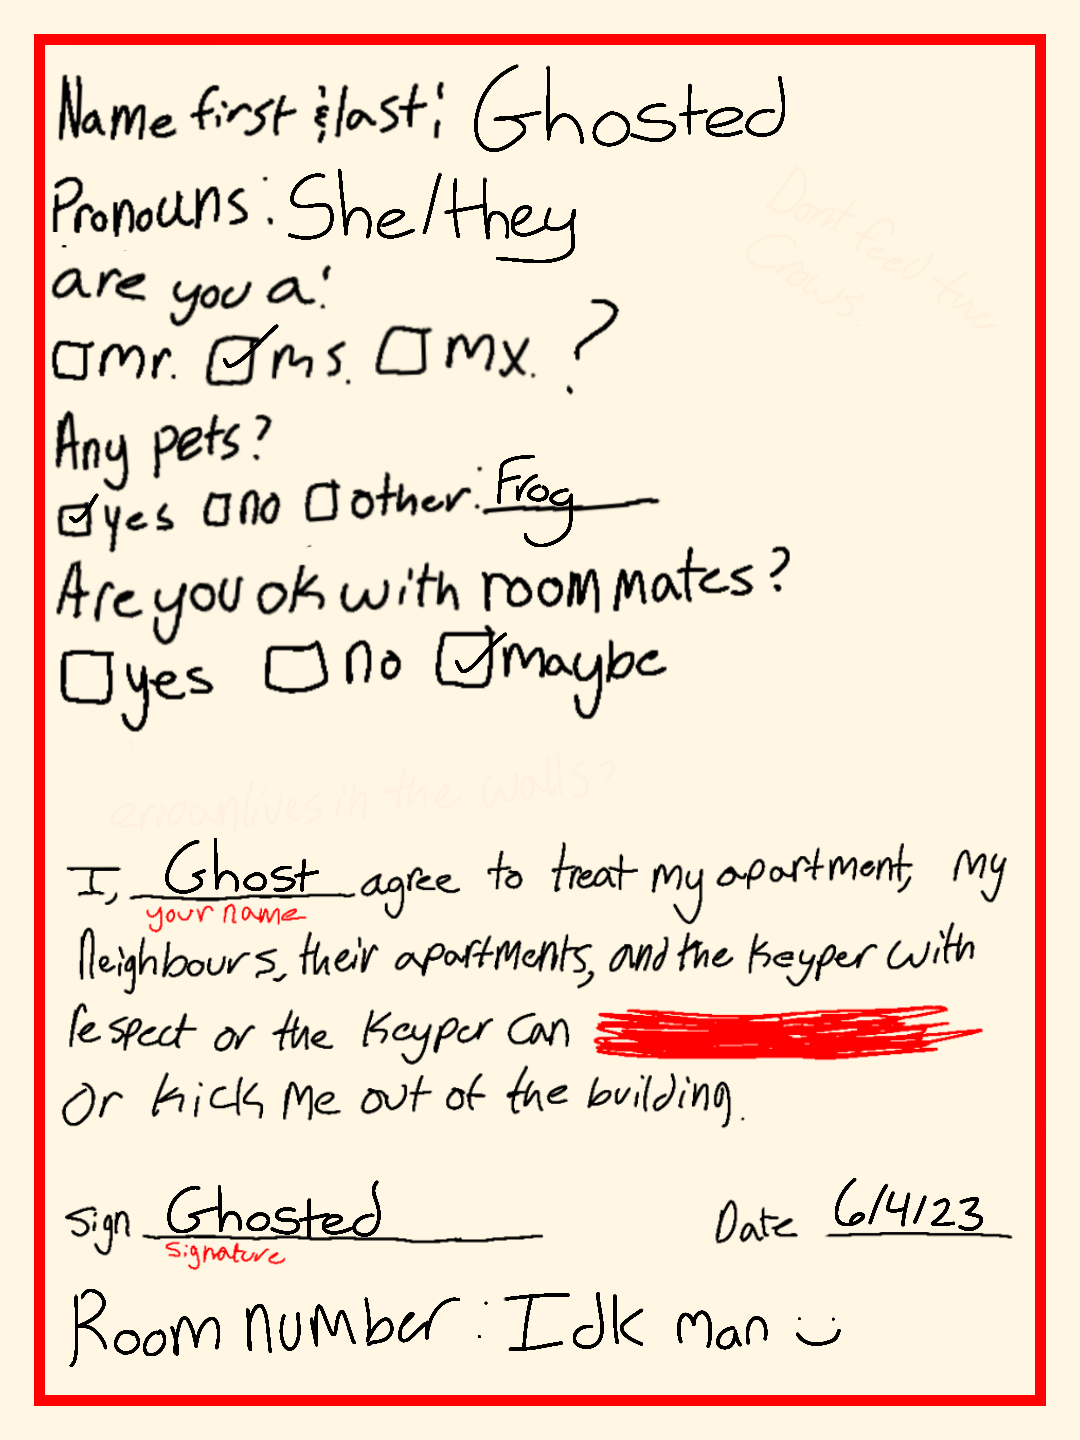 Name first & last: Ghosted
Pronouns: She/they
Dont feed the
Crows.
are you a:
mr. ms. mx. ?
Any pets?
yes no other: Frog
Are you ok with roommates?
yes no maybe
lives in the walls?
I, Ghost agree to treat my apartment, my
your name
Neighbours, their apartments, and the Keyper with
respect or the Keyper can
Or kick me out of the building.
Sign Ghosted Date 6/4/23
signature
Room number: Idk man